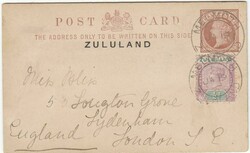 POST CARD
THE ADDRESS ONLY TO BE WRITTEN ON THIS SIDE
ZULULAND
Miss
5 Longton Grove
Sydenham
England London S.E